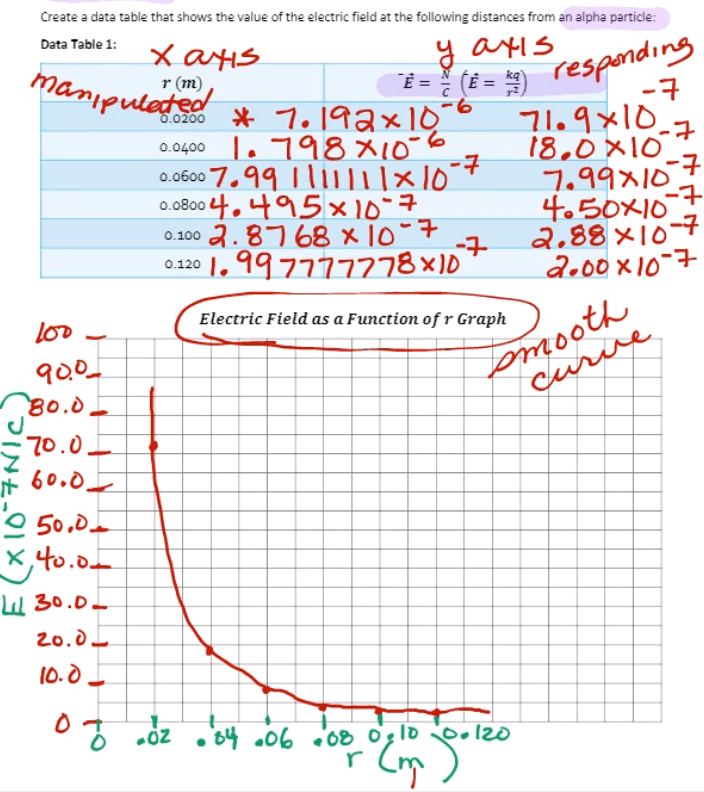 Create a data table that shows the value of the electric field at the following distances from an alpha particle:
Data Table 1:
x axis
y axis
responding
manipulated
r (m)
Ē = N/C (Ē = kq/r²)
0.0200 * 7.192x10⁻⁶ 71.9x10⁻⁷
0.0400 1.798x10⁻⁶ 18.0x10⁻⁷
0.0600 7.991111111x10⁻⁷ 7.99x10⁻⁷
0.0800 4.495x10⁻⁷ 4.50x10⁻⁷
0.100 2.8768x10⁻⁷ 2.88x10⁻⁷
0.120 1.997777778x10⁻⁷ 2.00x10⁻⁷
Electric Field as a Function of r Graph
smooth
curve
E (x10⁻⁷ N/C)
100
90.0
80.0
70.0
60.0
50.0
40.0
30.0
20.0
10.0
0
0 .02 .04 .06 .08 0.10 0.120
r (m)